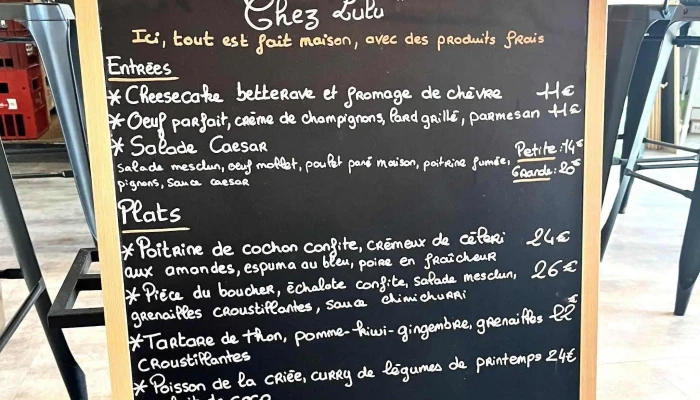 Chez Lulu
Ici, tout est fait maison, avec des produits frais
Entrées
* Cheesecake betterave et fromage de chèvre 11€
* Oeuf parfait, crème de champignons, lard grillé, parmesan 11€
* Salade Caesar Petite : 14€
salade mesclun, oeuf mollet, poulet pané maison, poitrine fumée, Grande : 20€
pignons, sauce caesar
Plats
* Poitrine de cochon confite, crémeux de céleri 24€
aux amandes, espuma au bleu, poire en fraîcheur
* Pièce du boucher, échalote confite, salade mesclun, 26€
grenailles croustillantes, sauce chimichurri
* Tartare de thon, pomme-kiwi-gingembre, grenailles 22€
croustillantes
* Poisson de la criée, curry de légumes de printemps 24€
lait de coco